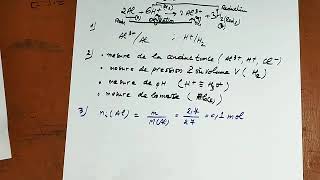 2Al + 6H⁺ → 2Al³⁺ + 3
1)
Al³⁺/Al ; H⁺/H₂
2) • mesure de la conductance (Al³⁺, H⁺, Cl⁻)
• mesure de pression volume V (H₂)
• mesure de pH (H⁺ = H₃O⁺)
• mesure de la masse
3) nᵢ(Al) = m/M(Al) = 2,7/27 = 0,1 mol